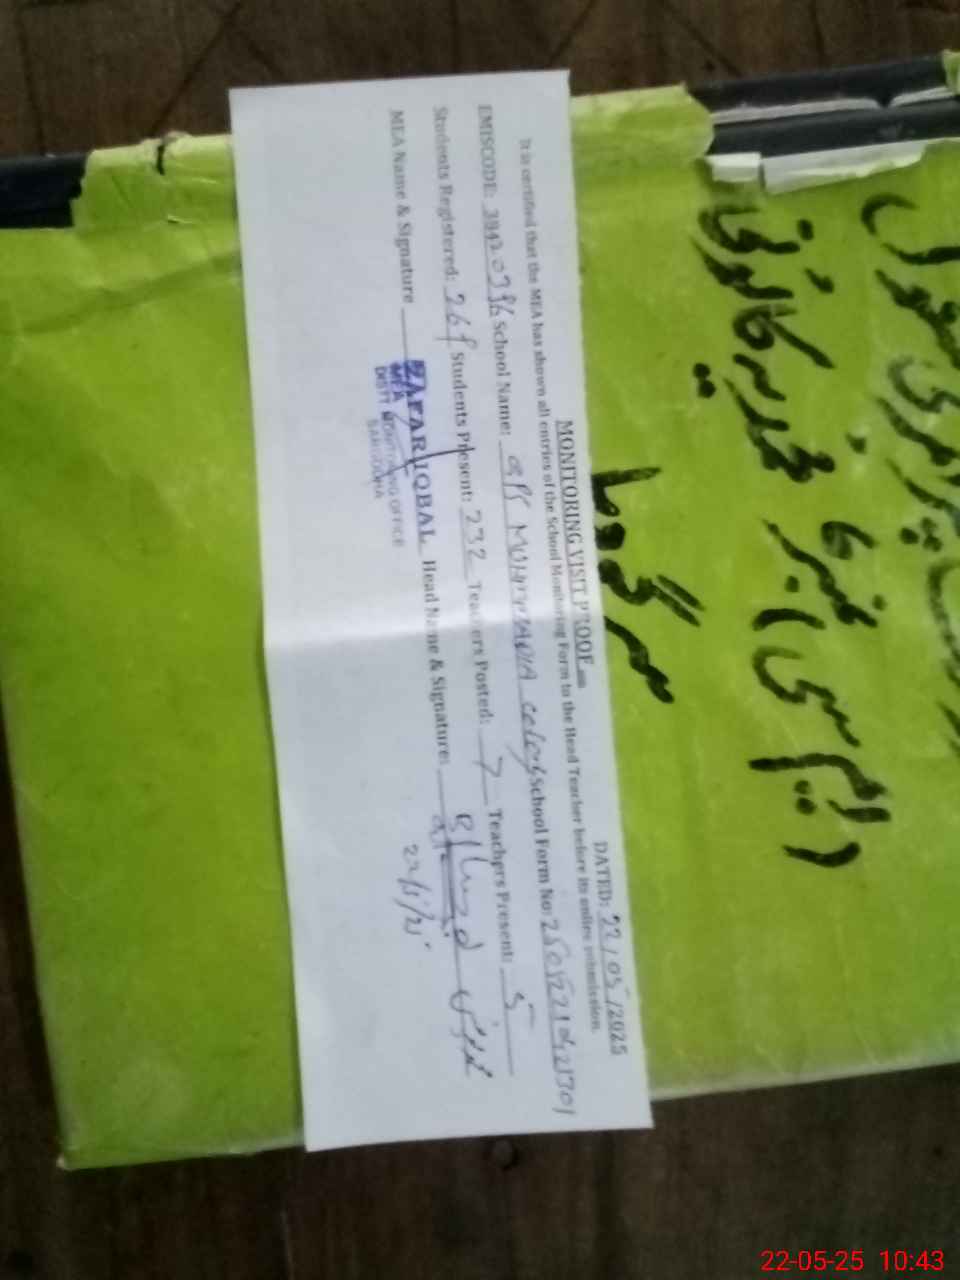 MONITORING VISIT PROOF
DATED: 22/05/2025
It is certified that the MEA has shown all entries of the School Monitoring Form to the Head Teacher before its online submission.
EMISCODE: School Name: MUHAMMADIA School Form No:
Students Registered: Students Present: 232 Teachers Posted: 7 Teachers Present: 5
MEA Name & Signature ZAFAR IQBAL Head Name & Signature:
MEA
DISTT MONITORING OFFICE
SARGODHA
22/5/25
پرائمری سکول
محمدیہ کالونی
نمبر 6 (ایم سی)
سرگودھا
22-05-25 10:43